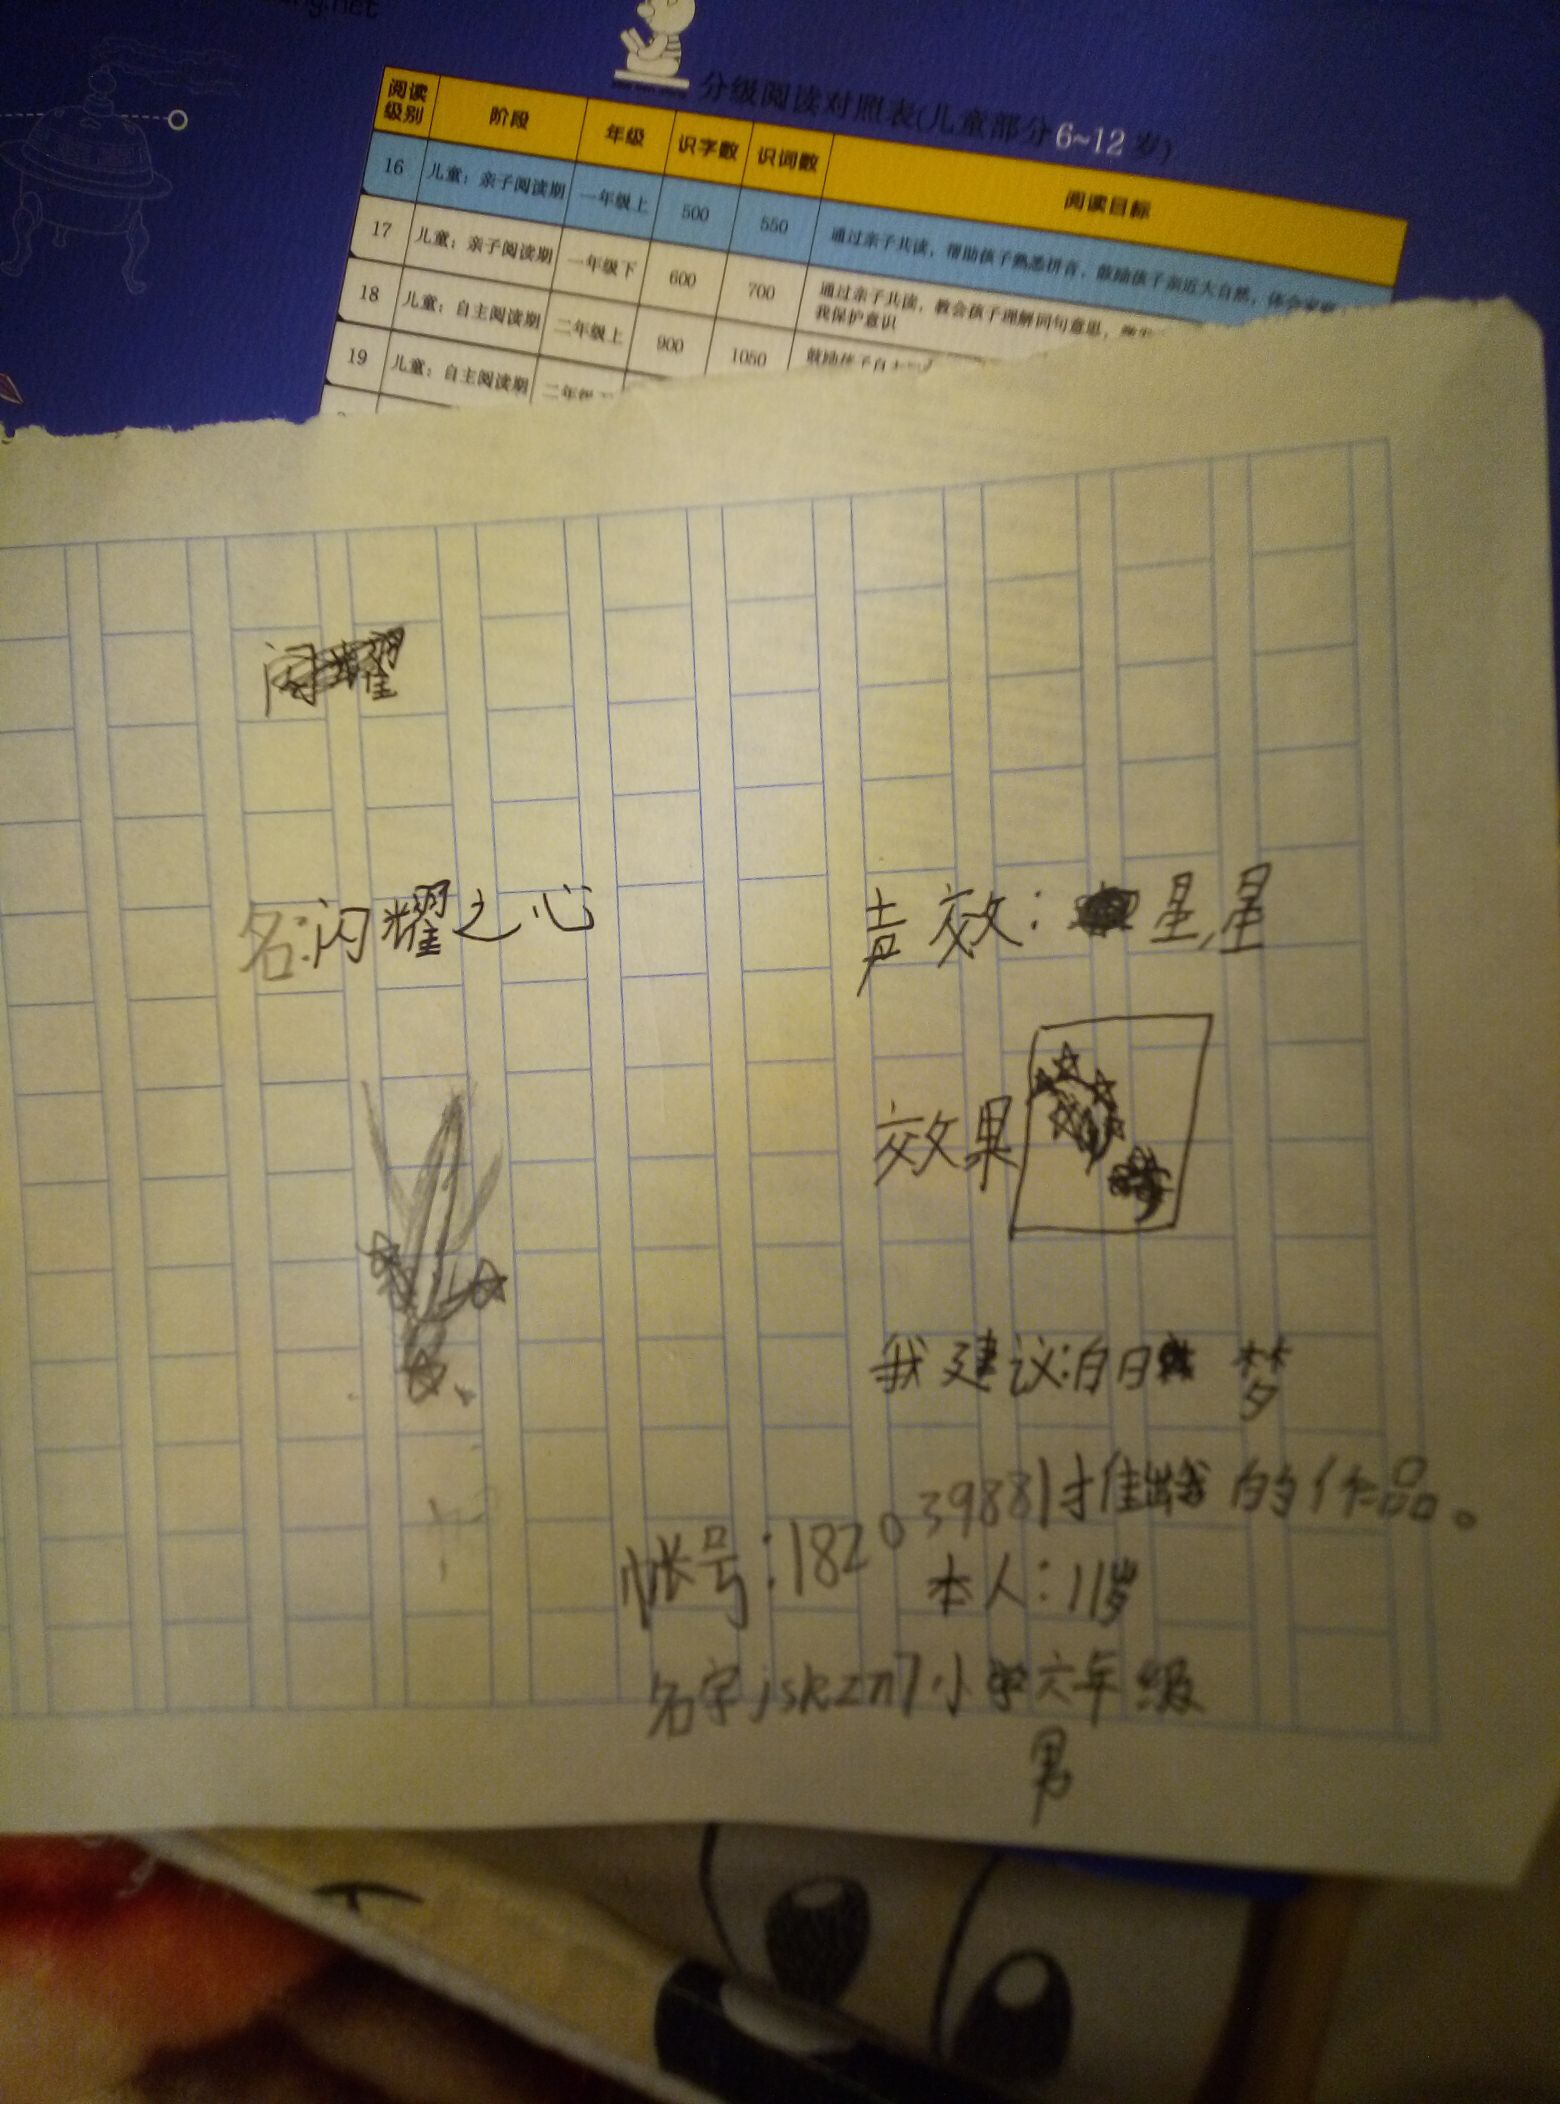 分级阅读对照表(儿童部分6~12岁)
阅读级别 阶段 年级 识字数 识词数 阅读目标
16 儿童：亲子阅读期 一年级上 500 550 通过亲子共读，帮助孩子熟悉拼音，鼓励孩子亲近大自然，体会家庭
17 儿童：亲子阅读期 一年级下 600 700 通过亲子共读，教会孩子理解词句意思，
我保护意识
18 儿童：自主阅读期 二年级上 900 1050 鼓励孩子自主
19 儿童：自主阅读期 二年级
闪耀
名:闪耀之心
声效：星星
效果
我建议:白日梦
39881推出我的作品。
帐号：1820
本人：11岁
名字jskzn7小学六年级
男